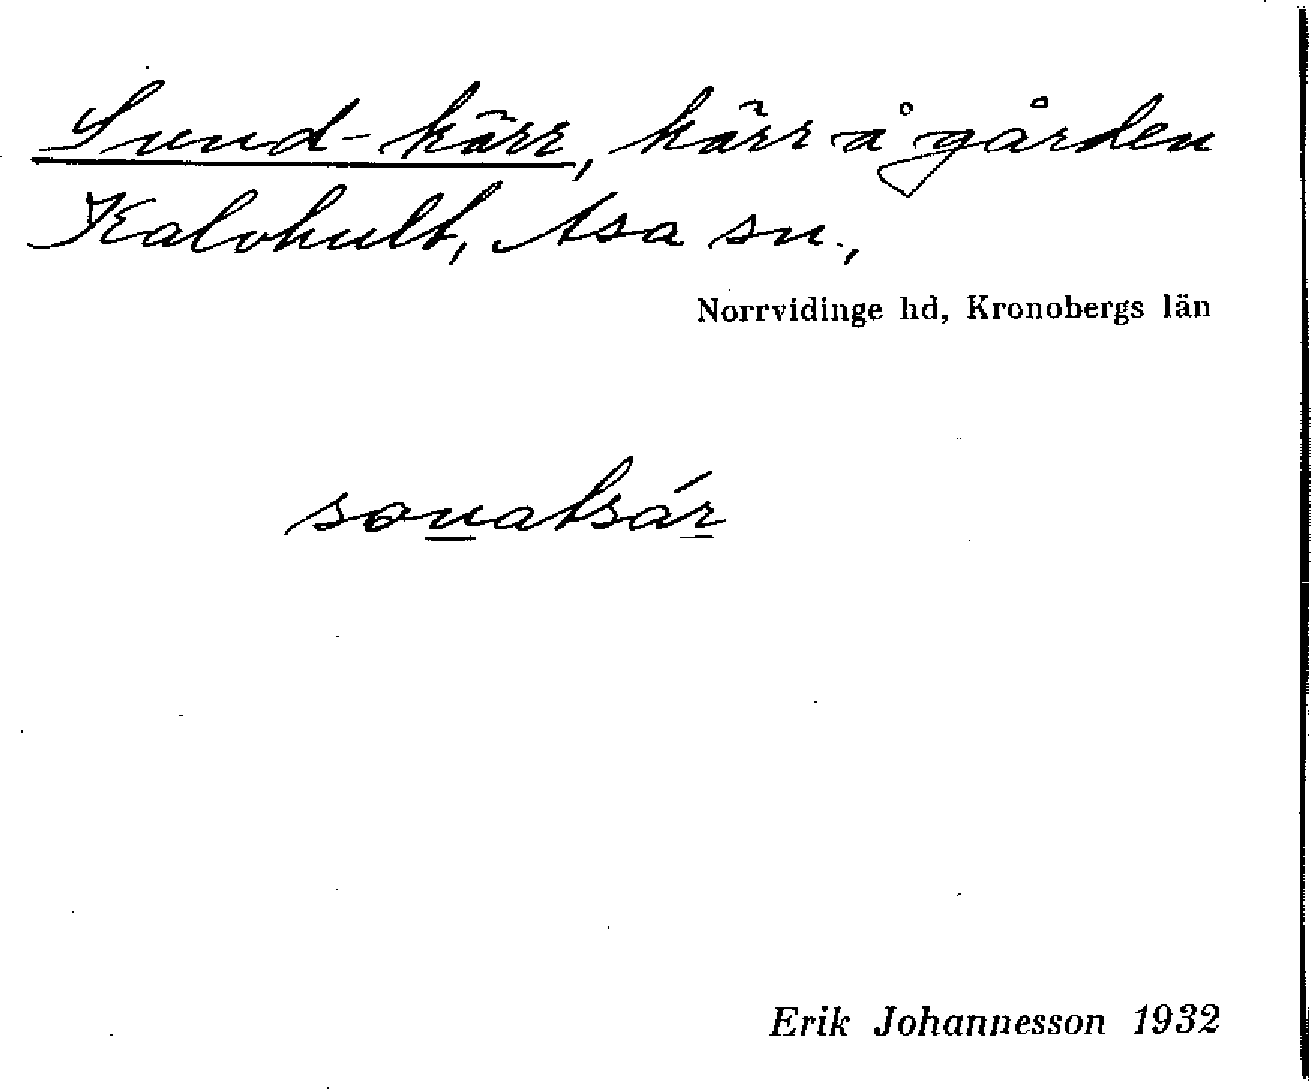 Sund-kärr, kärr å gården
Kalvhult, Asa sn.,
Norrvidinge hd, Kronobergs län
Erik Johannesson 1932